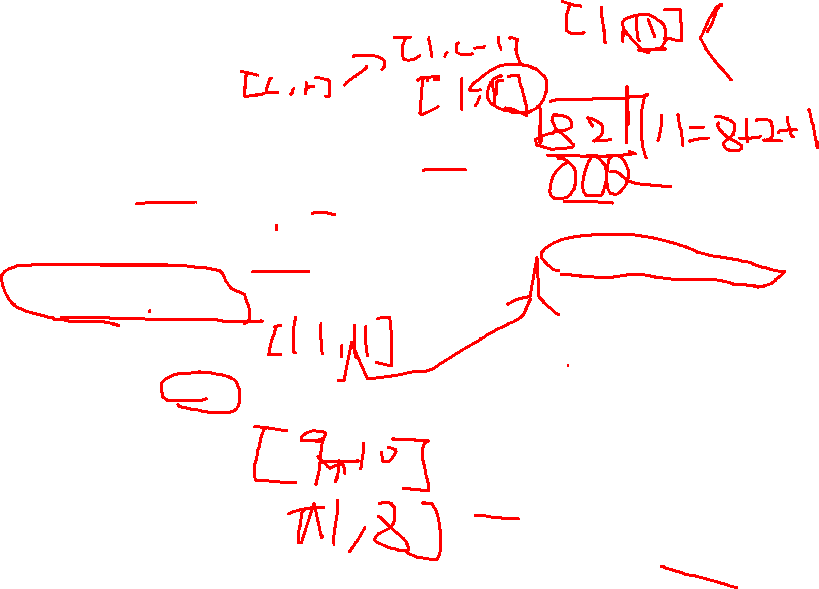 [1,11]
[1,L-1]
[L,r]
[1,r]
82
11=8+2+1
000
[11,11]
[9,10]
[1,8]